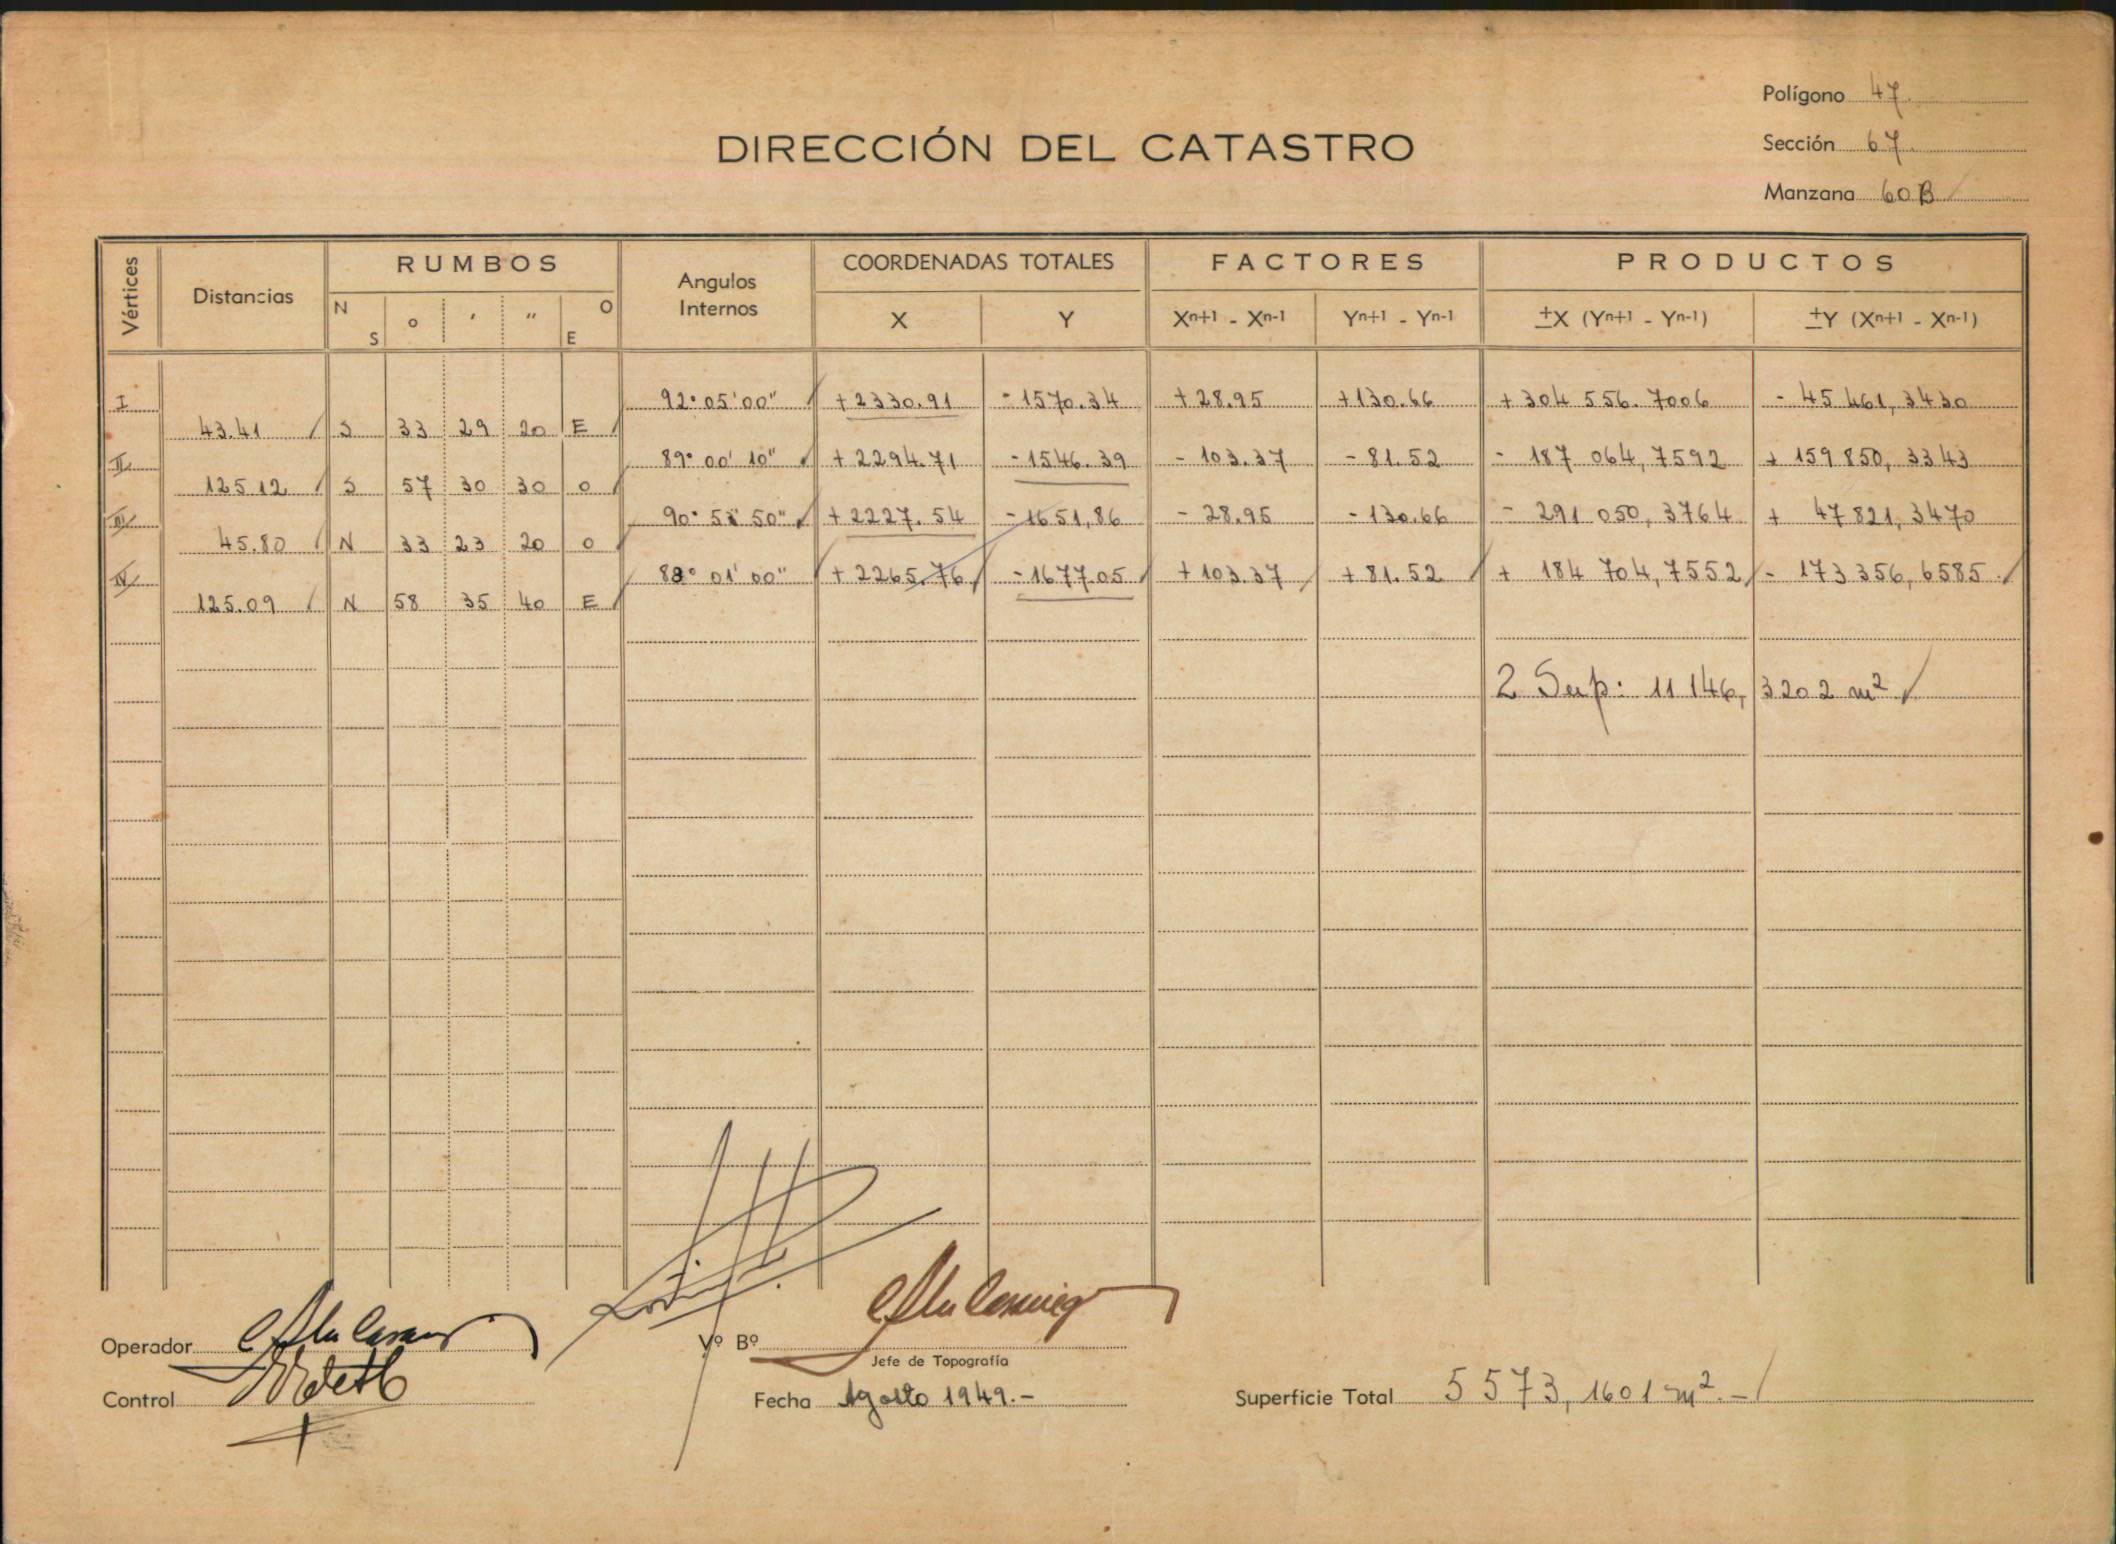 Polígono 47.
DIRECCIÓN DEL CATASTRO
Sección 67.
Manzana 60B
Vértices Distancias RUMBOS Angulos Internos COORDENADAS TOTALES FACTORES PRODUCTOS
N S o ' " O E X Y Xn+1 - Xn-1 Yn+1 - Yn-1 ±X (Yn+1 - Yn-1) ±Y (Xn+1 - Xn-1)
I 92° 05' 00" +2330.91 -1570.34 +28.95 +130.66 +304 556.7006 - 45 461,3430
43.41 S 33 29 20 E
II 89° 00' 10" +2294.71 -1546.39 - 103.37 - 81.52 - 187 064,7592 + 159 850,3343
125.12 S 57 30 30 O
III 90° 50" +2227.54 -1651,86 - 28.95 - 130.66 - 291 050,3764 + 47 821,3470
45.80 N 33 23 20 O
IV 88° 01' 00" +2265.76 -1677.05 +103.37 +81.52 + 184 704,7552 - 173 356,6585
125.09 N 58 35 40 E
2 Sup: 11 146,3202 m²
Operador Vº Bº
Jefe de Topografía
Control Fecha Agosto 1949.- Superficie Total 5 573,1601 m².-